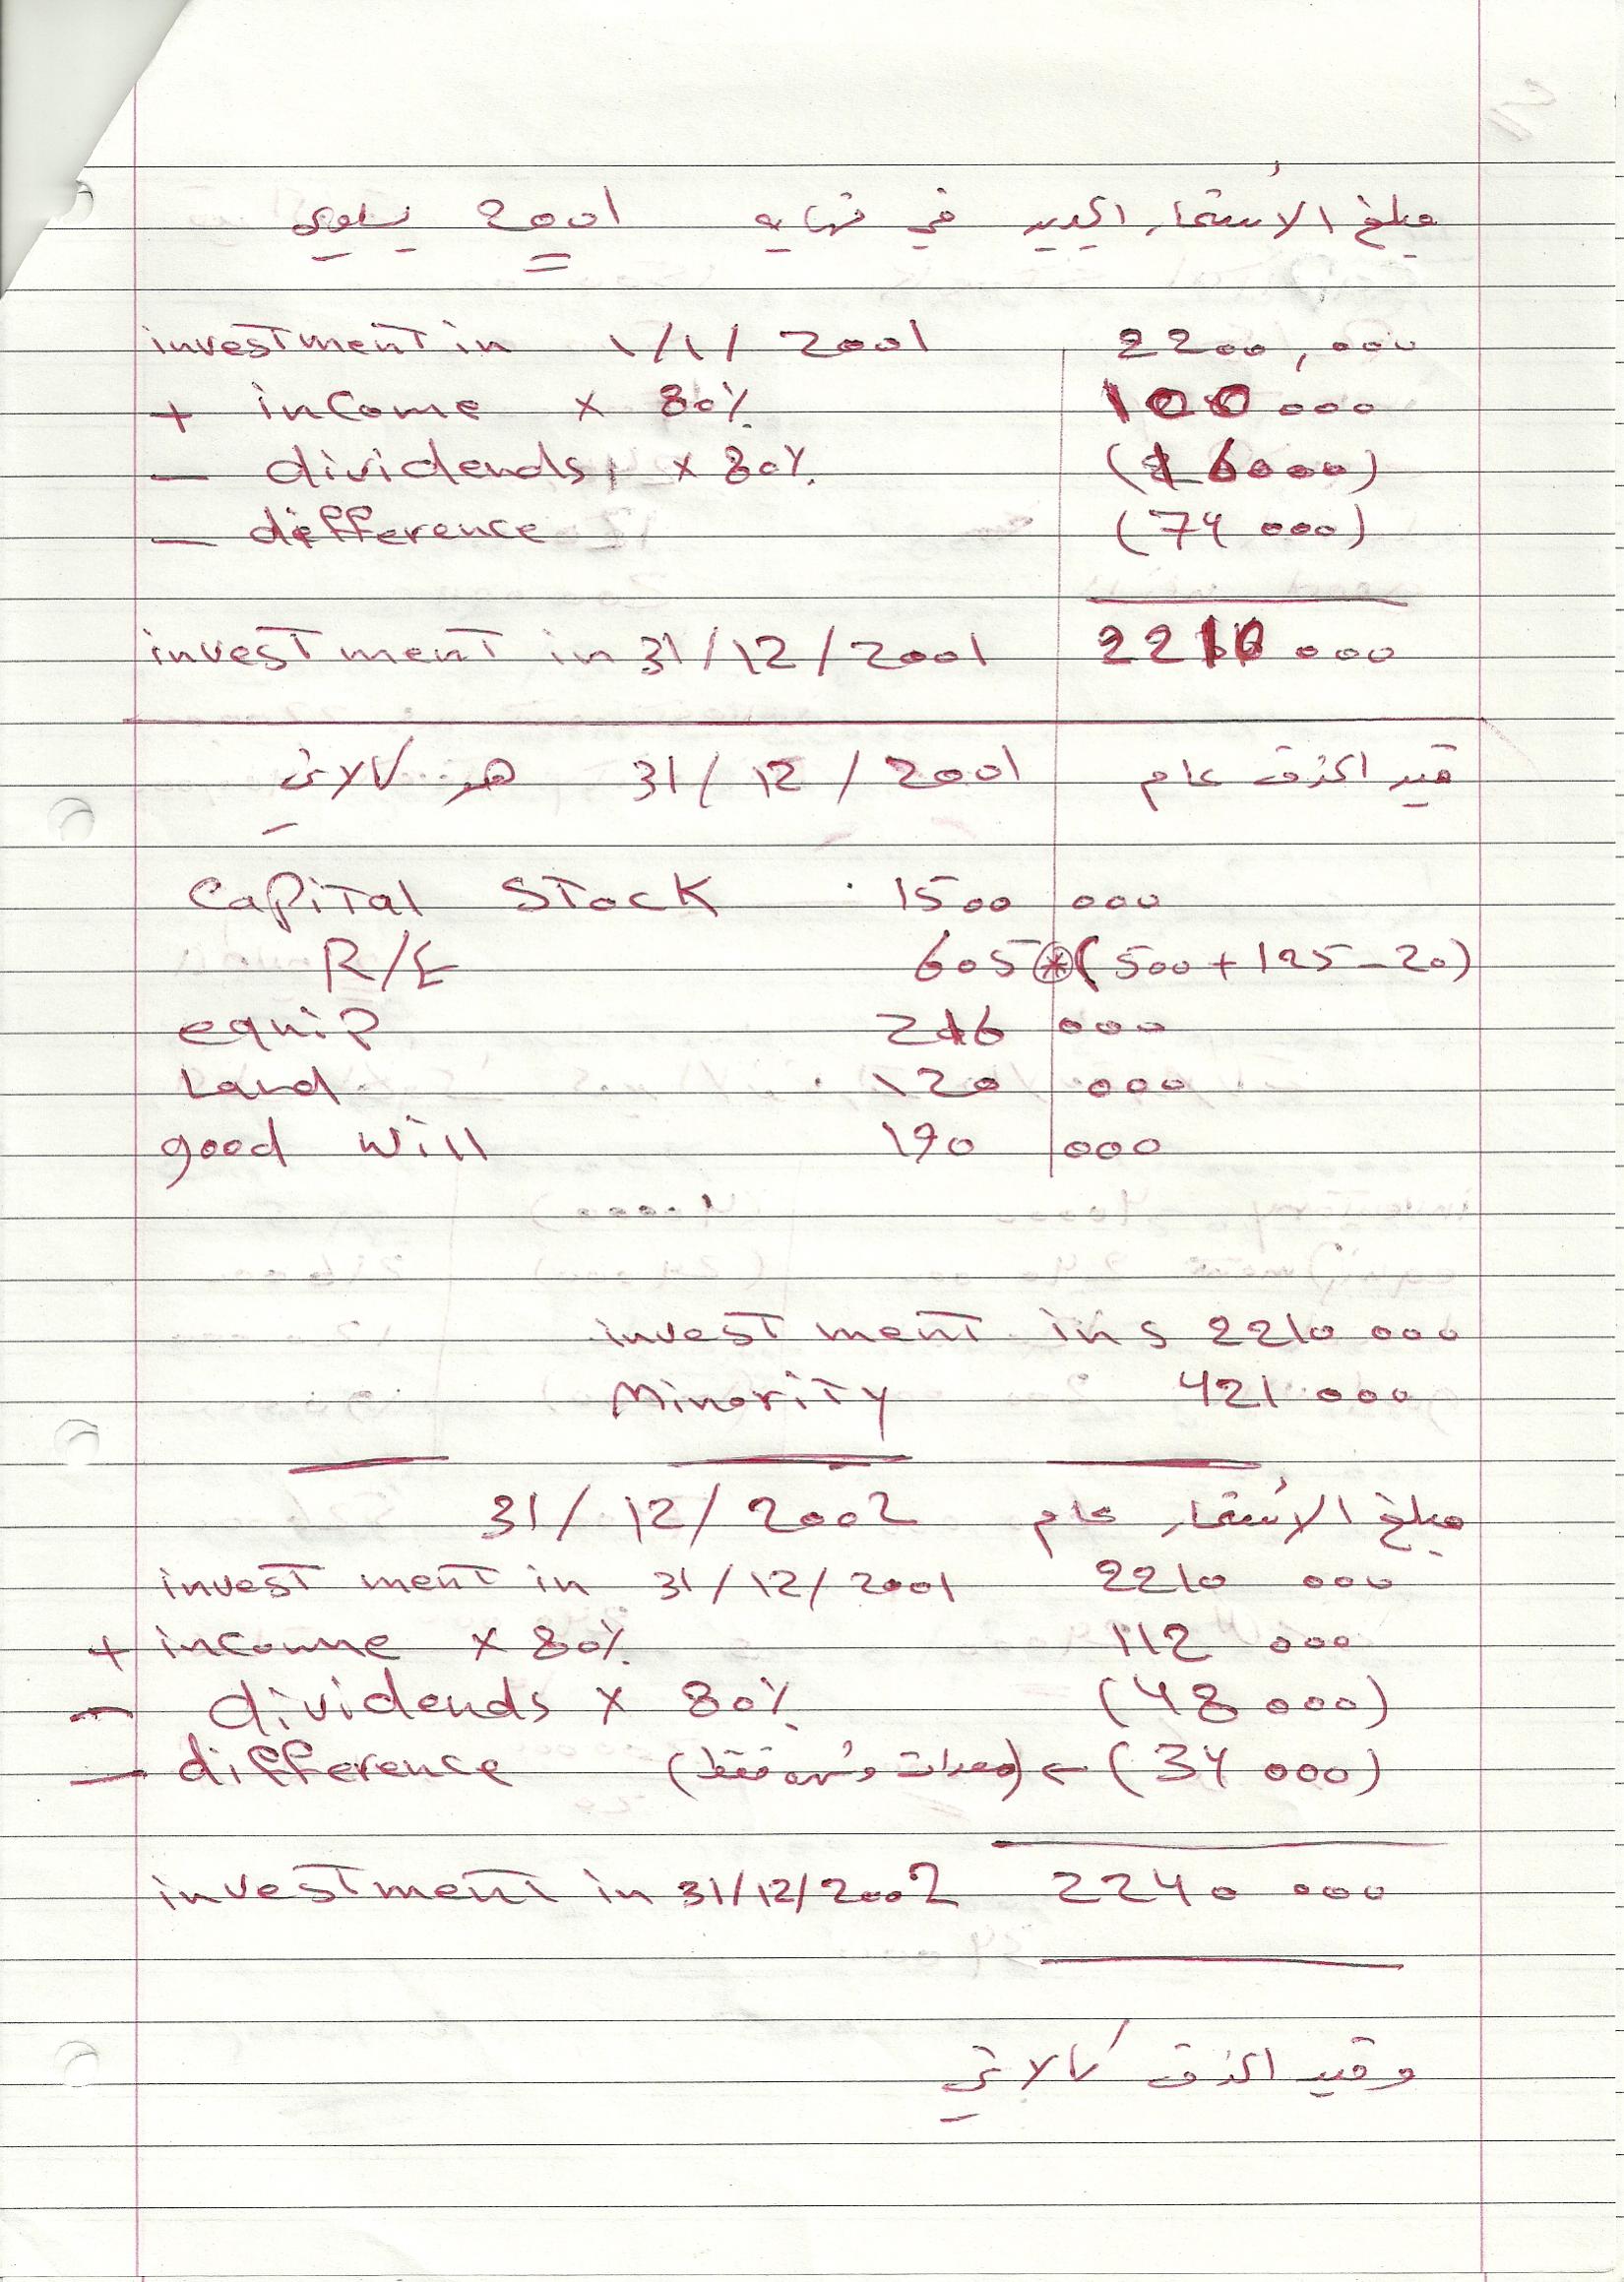 مبلغ الأستثمار الجديد في نهايه 2001 يساوي
investment in 1/1/2001 2200,000
+ income x 80% 100 000
— dividends x 80% (16000)
— difference (74 000)
investment in 31/12/2001 2210 000
قيد الحذف عام 31/12/2001 هو كالاتي
Capital Stock 1500 000
R/E 605 * (500 + 125 - 20)
equip 216 000
Land 120 000
good will 190 000
investment in s 2210 000
Minority 421 000
مبلغ الأستثمار عام 31/12/2002
investment in 31/12/2001 2210 000
+ income x 80% 112 000
— dividends x 80% (48 000)
— difference (معدات وشهره فقط) ← (34 000)
investment in 31/12/2002 2240 000
وقيد الحذف كالاتي